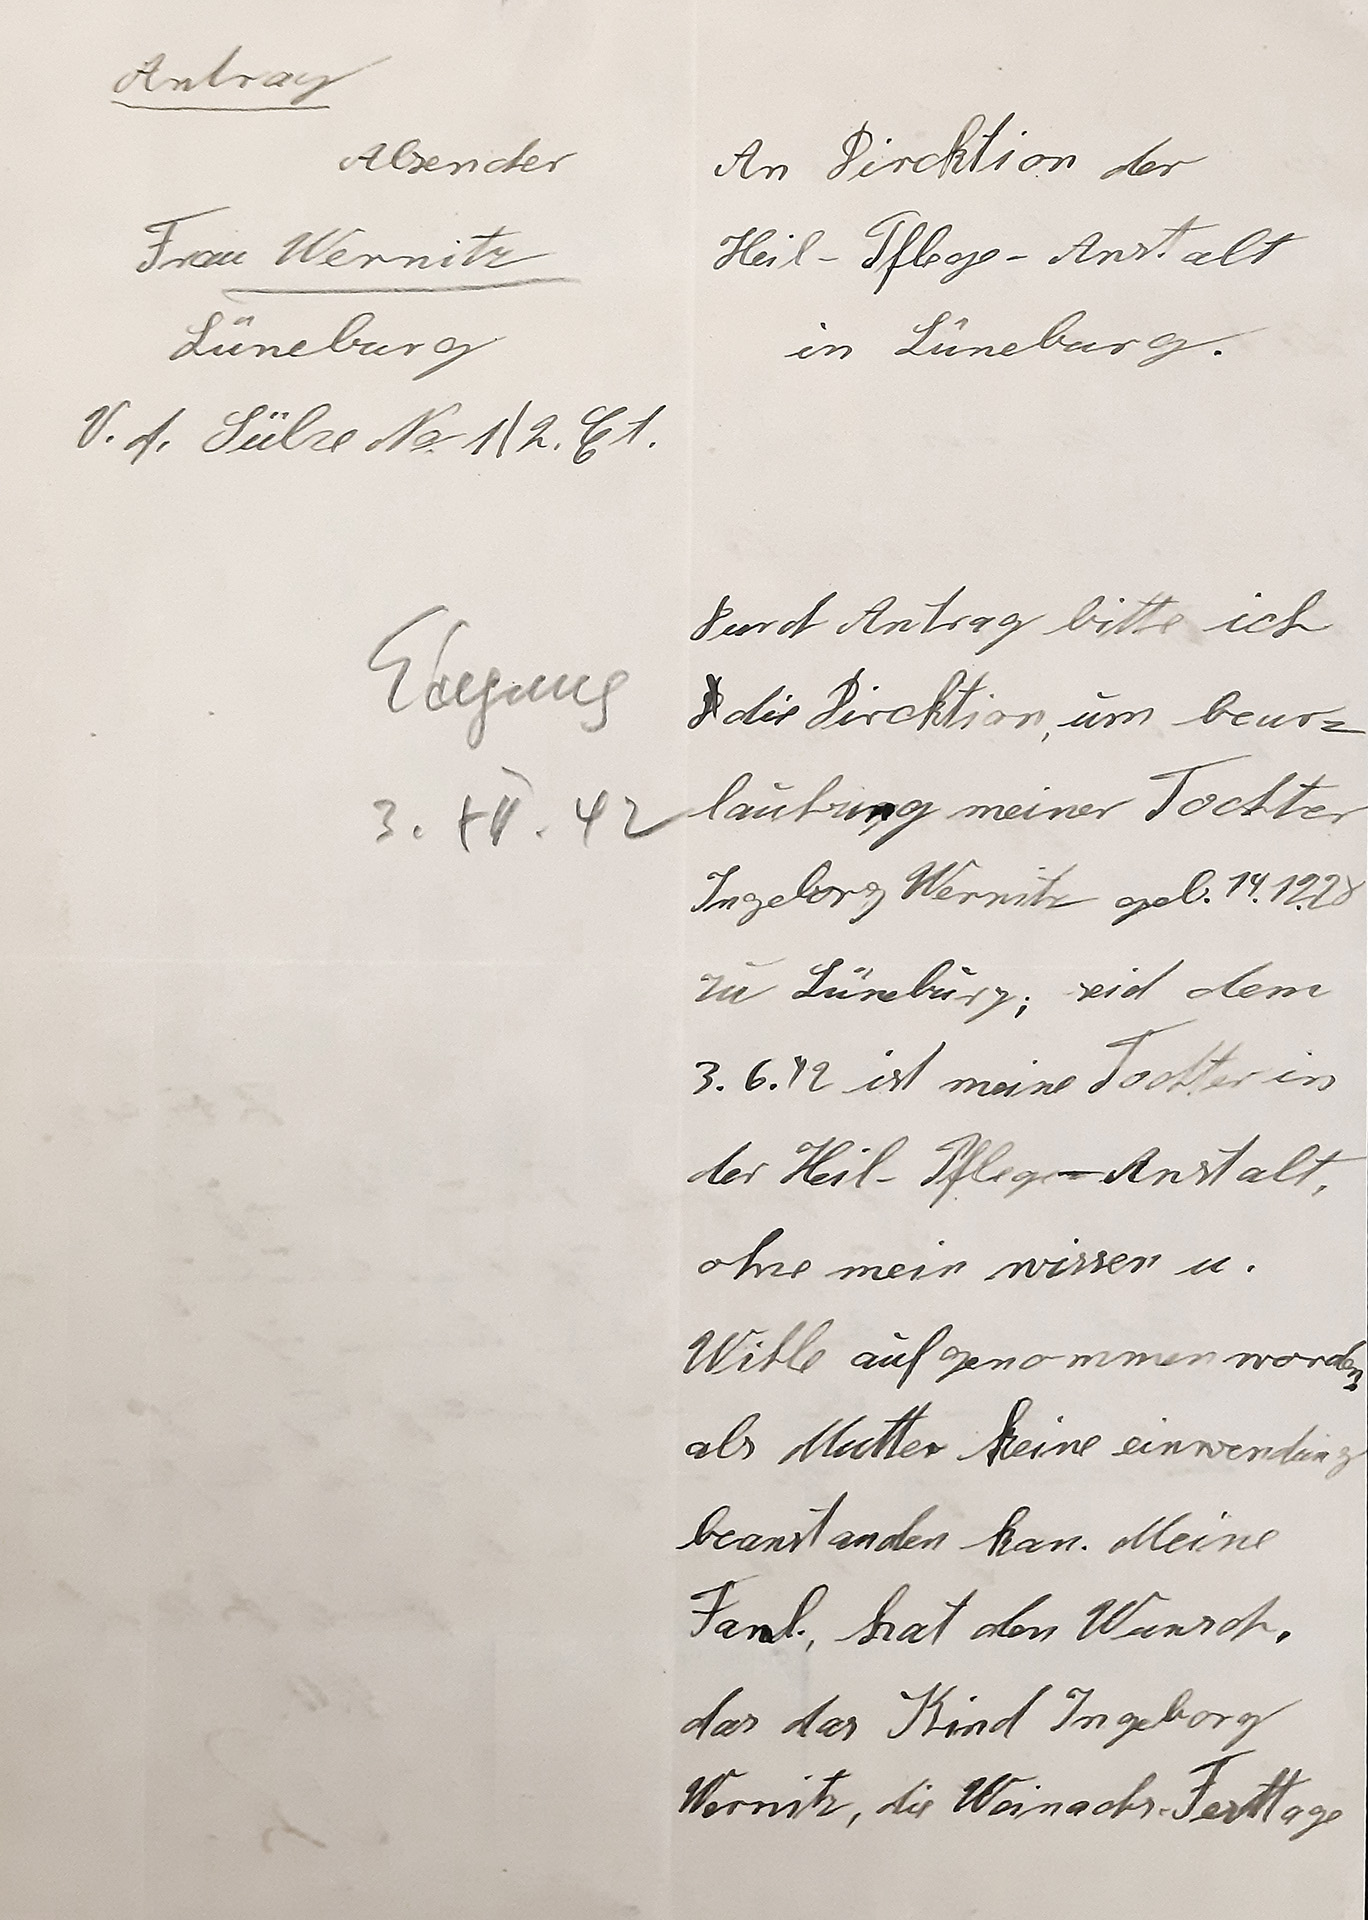 Antrag
Absender
Frau Wernitz
Lüneburg
V. d. Sülze No 1/2. Et.
An Dircktion der
Heil- Pflege- Anstalt
in Lüneburg.
3. XII. 42
Durch Antrag bitte ich
die Dircktion, um beur=
laubung meiner Tochter
Ingeborg Wernitz geb. 14.12.28
zu Lüneburg; seid dem
3.6.42 ist meine Tochter in
der Heil- Pflege-Anstalt,
ohne mein wissen u.
Wille aufgenommen worden,
als Mutter keine einwendung
beanstanden kan. Meine
Faml., hat den Wunsch,
das das Kind Ingeborg
Wernitz, die Weinachs-Festtage